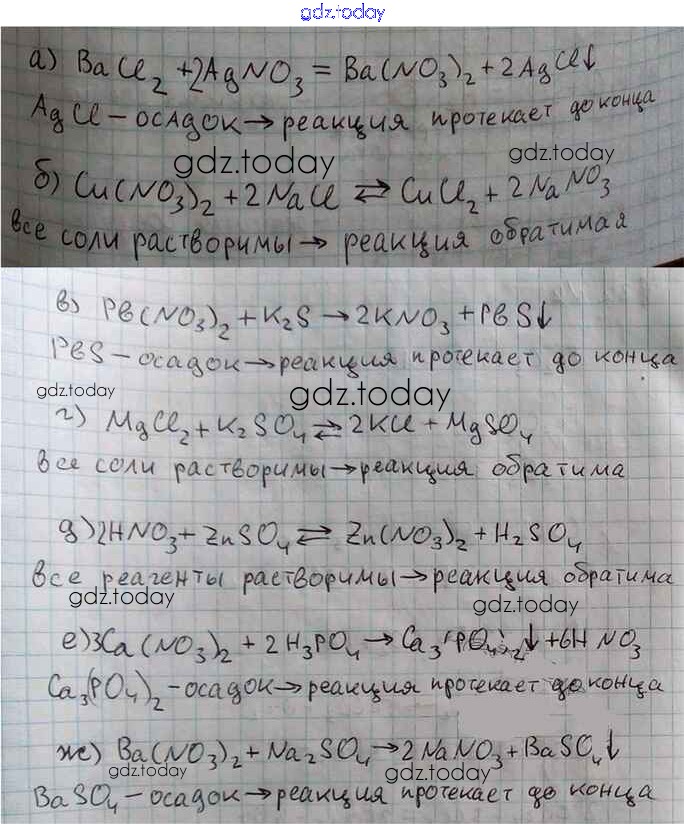 gdz.today
а) BaCl₂ + 2AgNO₃ = Ba(NO₃)₂ + 2AgCl↓
AgCl – осадок → реакция протекает до конца
gdz.today
gdz.today
б) Cu(NO₃)₂ + 2NaCl ⇄ CuCl₂ + 2NaNO₃
все соли растворимы → реакция обратимая
в) Pb(NO₃)₂ + K₂S → 2KNO₃ + PbS↓
PbS – осадок → реакция протекает до конца
gdz.today
gdz.today
г) MgCl₂ + K₂SO₄ ⇄ 2KCl + MgSO₄
все соли растворимы → реакция обратима
д) 2HNO₃ + ZnSO₄ ⇄ Zn(NO₃)₂ + H₂SO₄
все реагенты растворимы → реакция обратима
gdz.today
gdz.today
е) 3Ca(NO₃)₂ + 2H₃PO₄ → Ca₃(PO₄)₂↓ + 6HNO₃
Ca₃(PO₄)₂ – осадок → реакция протекает до конца
ж) Ba(NO₃)₂ + Na₂SO₄ → 2NaNO₃ + BaSO₄↓
gdz.today
gdz.today
BaSO₄ – осадок → реакция протекает до конца